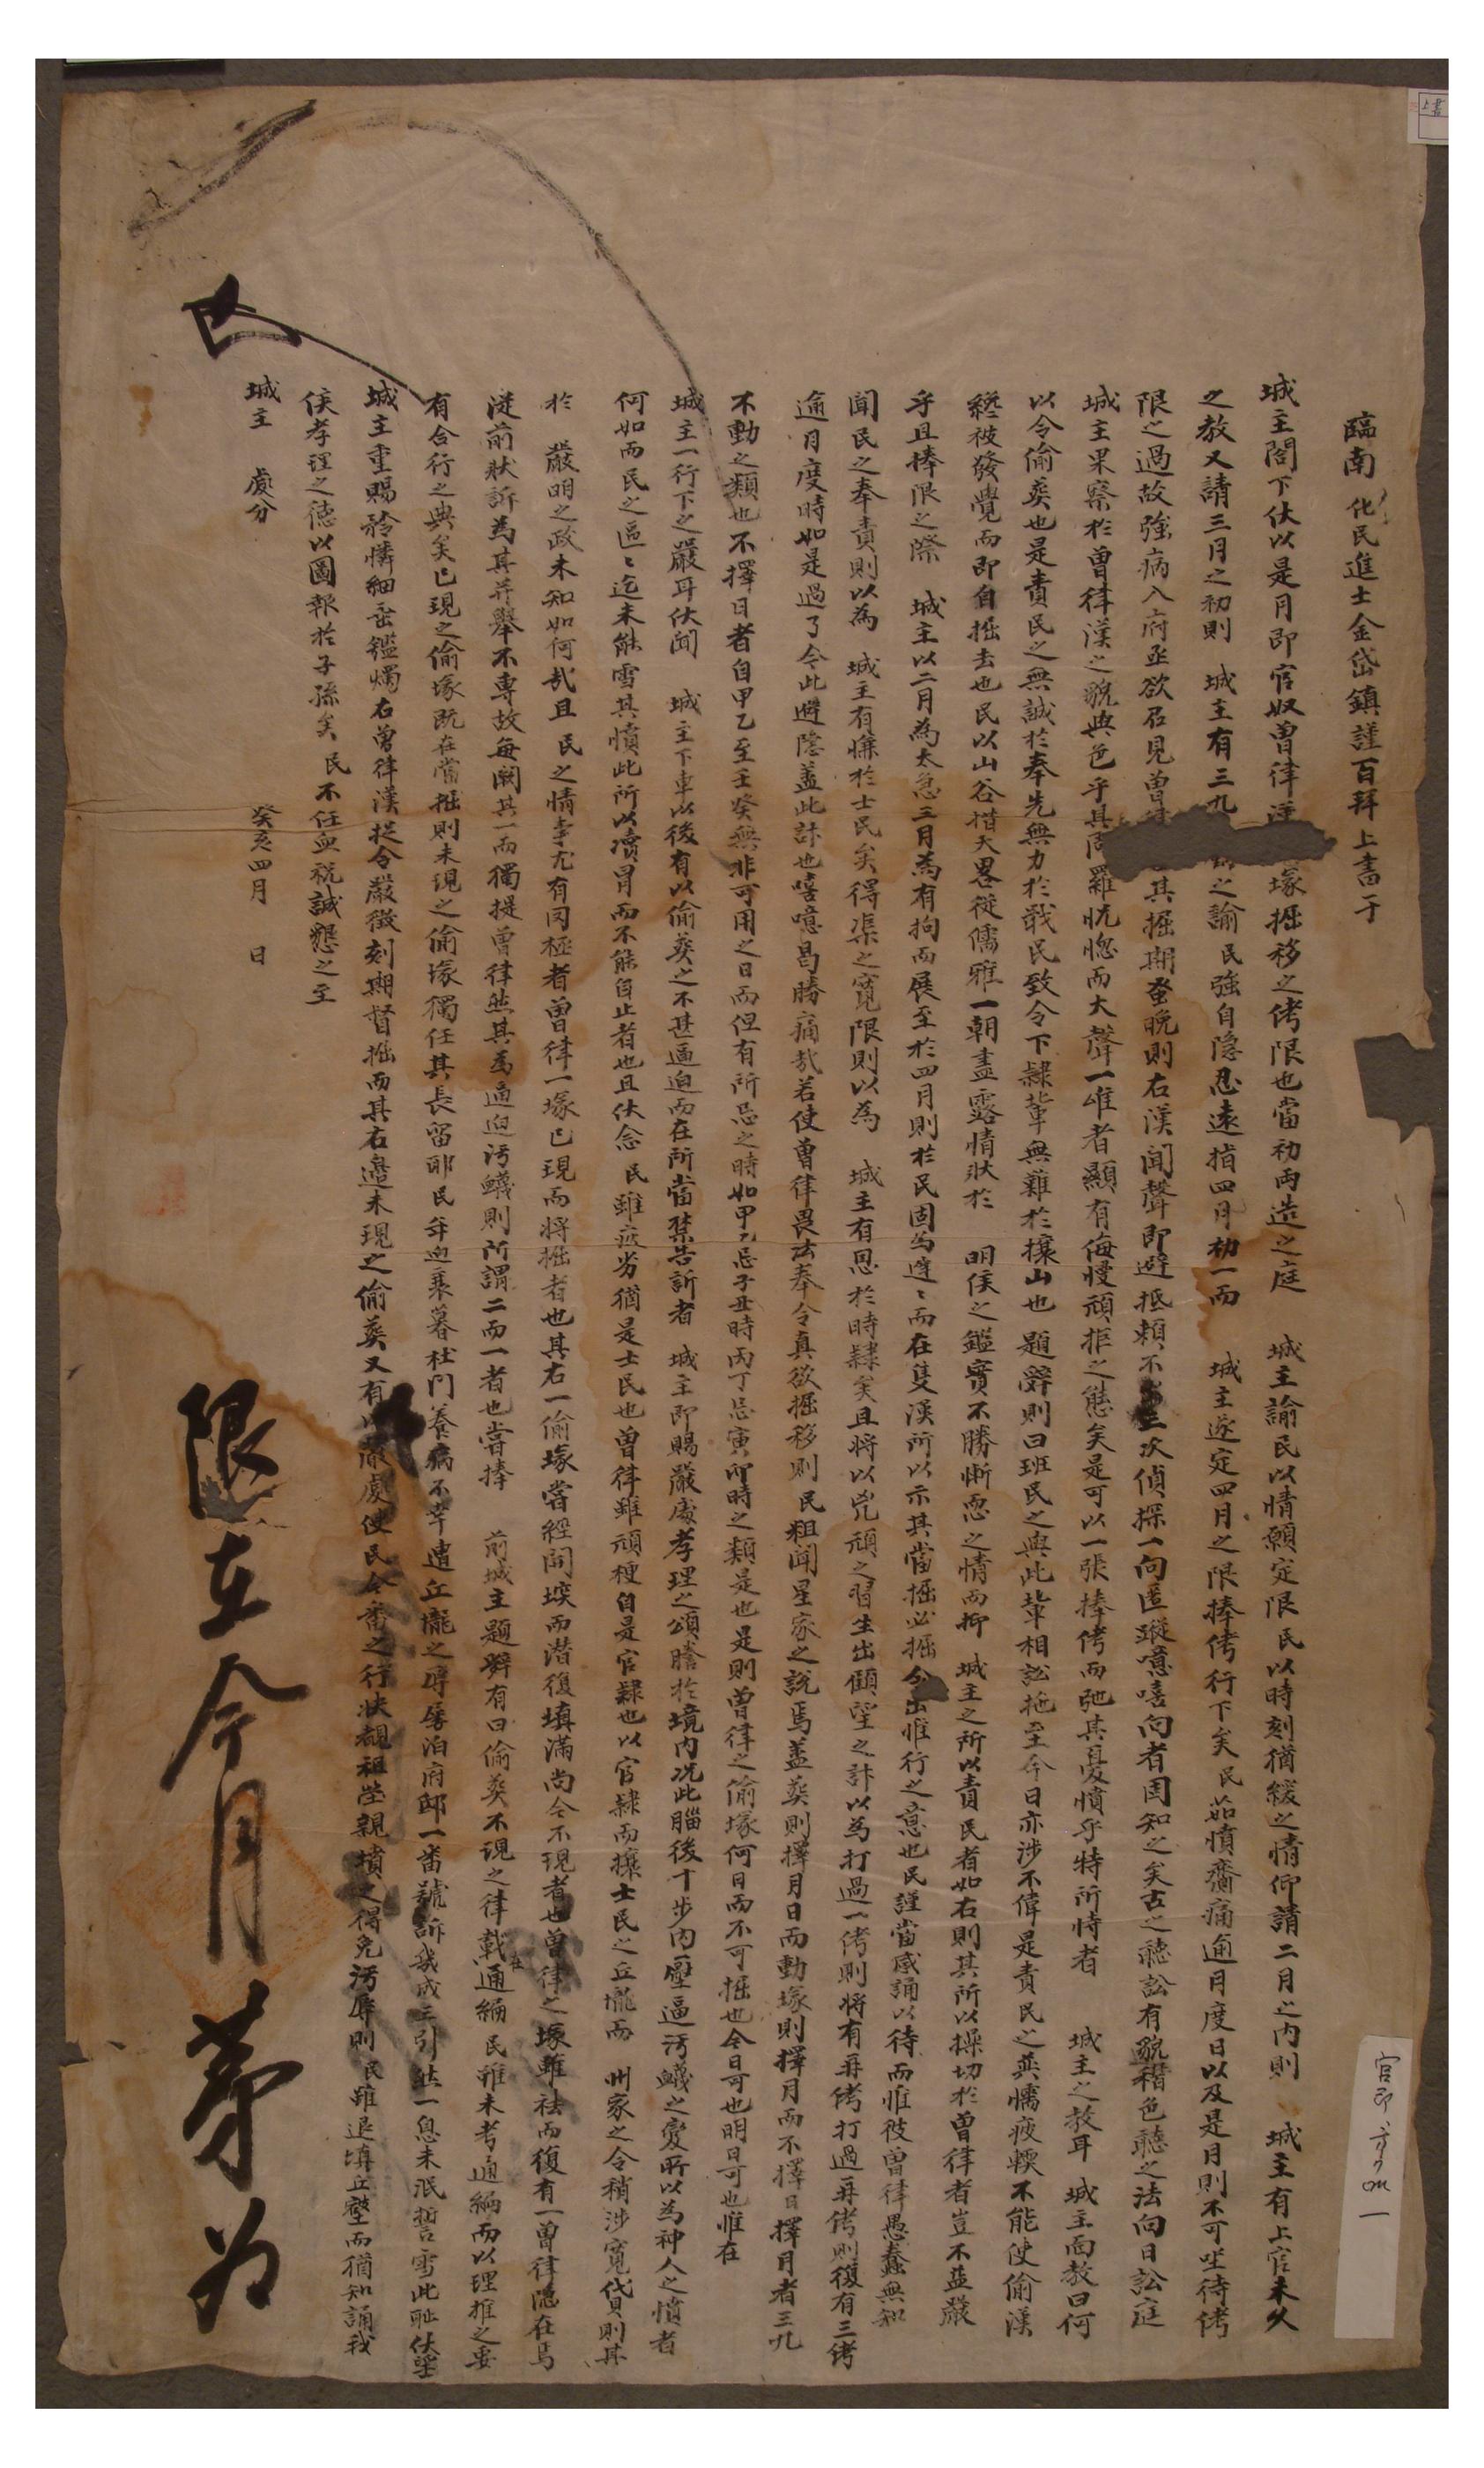 臨南 化民進士金岱鎮謹百拜上書于
城主閤下伏以是月即官奴曾律 塚掘移之侤限也當初兩造之庭 城主諭民以情願定限民以時刻猶緩之情仰請二月之內則 城主有上官未久
之敎又請三月之初則 城主有三九 之諭民強自隱忍遠指四月初一而 城主遂定四月之限捧侤行下矣民茹憤齎痛逾月度日以及是月則不可坐待侤
限之過故強病入府亟欲召見曾 其掘期蚤晩則右漢聞聲即避抵賴不 三次偵探一向匿蹤噫嘻向者固知之矣古之聽訟有貌稽色聽之法向日訟庭
城主果察於曾律漢之貌與色乎其 羅忱惚而大聲一唯者顯有侮慢頑拒之態矣是可以一張捧侤而弛其憂憤乎特所恃者 城主之敎耳 城主面敎曰何
以令偷葬也是責民之無誠於奉先無力於戢民致令下隸輩無難於攘山也 題辭則曰班民之與此輩相訟拖至今日亦涉不偉是責民之 懦疲輭不能使偷漢
纔被發覺而即自掘去也民以山谷措大畧從儒雅一朝盡露情狀於 明侯之鑑實不勝慚恧之情而抑 城主之所以責民者如右則其所以操切於曾律者豈不益嚴
乎且捧限之際 城主以二月為太急三月為有拘而展至於四月則於民固為遲〻而在隻漢所以示其當掘必掘令出惟行之意也民謹當感誦以待而惟彼曾律愚蠢無知
聞民之奉責則以為 城主有慊於士民矣得渠之寬限則以為 城主有恩於時隸矣且將以兇頑之習生出顧望之計以為打過一侤則將有再侤打過再侤則復有三侤
逾月度時如是過了今此避隱盖此計也嘻噫曷勝痛哉若使曾律畏法奉令真欲掘移則民粗聞星家之說焉盖葬則擇月日而動塚則擇月而不擇日擇月者三九
不動之類也不擇日者自甲乙至壬癸無非可用之日而但有所忌之時如甲乙忌子丑時丙丁忌寅卯時之類是也是則曾律之偷塚何日而不可掘也今日可也明日可也惟在
城主一行下之嚴耳伏聞 城主下車以後有以偷葬之不甚逼迫而在所當禁告訴者 城主即賜嚴處孝理之頌騰於境內况此腦後十步內壓逼汚衊之變所以為神人之憤者
何如而民之區〻迄未能雪其憤此所以瀆冒而不能自止者也且伏念 民雖疲劣猶是士民也曾律雖頑梗自是官隸也以官隸而攘士民之丘壠而 州家之令稍涉寬貸則其
於 嚴明之政未知如何哉且 民之情事尤有罔極者曾律一塚已現而將掘者也其右一偷塚嘗經開埃而潛復填滿尚今不現者也曾律之塚雖袪而復有一曾律隱在焉
從前狀訴為其并舉不專故每闕其一而獨提曾律然其為逼迫汚衊則所謂二而一者也嘗捧 前城主題辭有曰偷葬不現之律載在通編民雖未考通編而以理推之要
有合行之典矣已現之偷塚旣在當掘則未現之偷塚獨任其長留耶民年迫衰暮杜門養病不幸遭丘壠之辱屢泊府邸一番號訴幾成三引然一息未泯誓雪此恥伏望
城主重賜矜憐細垂鑑燭右曾律漢捉令嚴徵刻期督掘而其右邊未現之偷葬又有以嚴處使民今番之行快覩祖塋親墳之得免汚辱則民雖退塡丘壑而猶知誦我
侯孝理之德以圖報於子孫矣 民不任血祝誠懇之至
城主 處分 癸亥四月 日
限在今月
官
上書